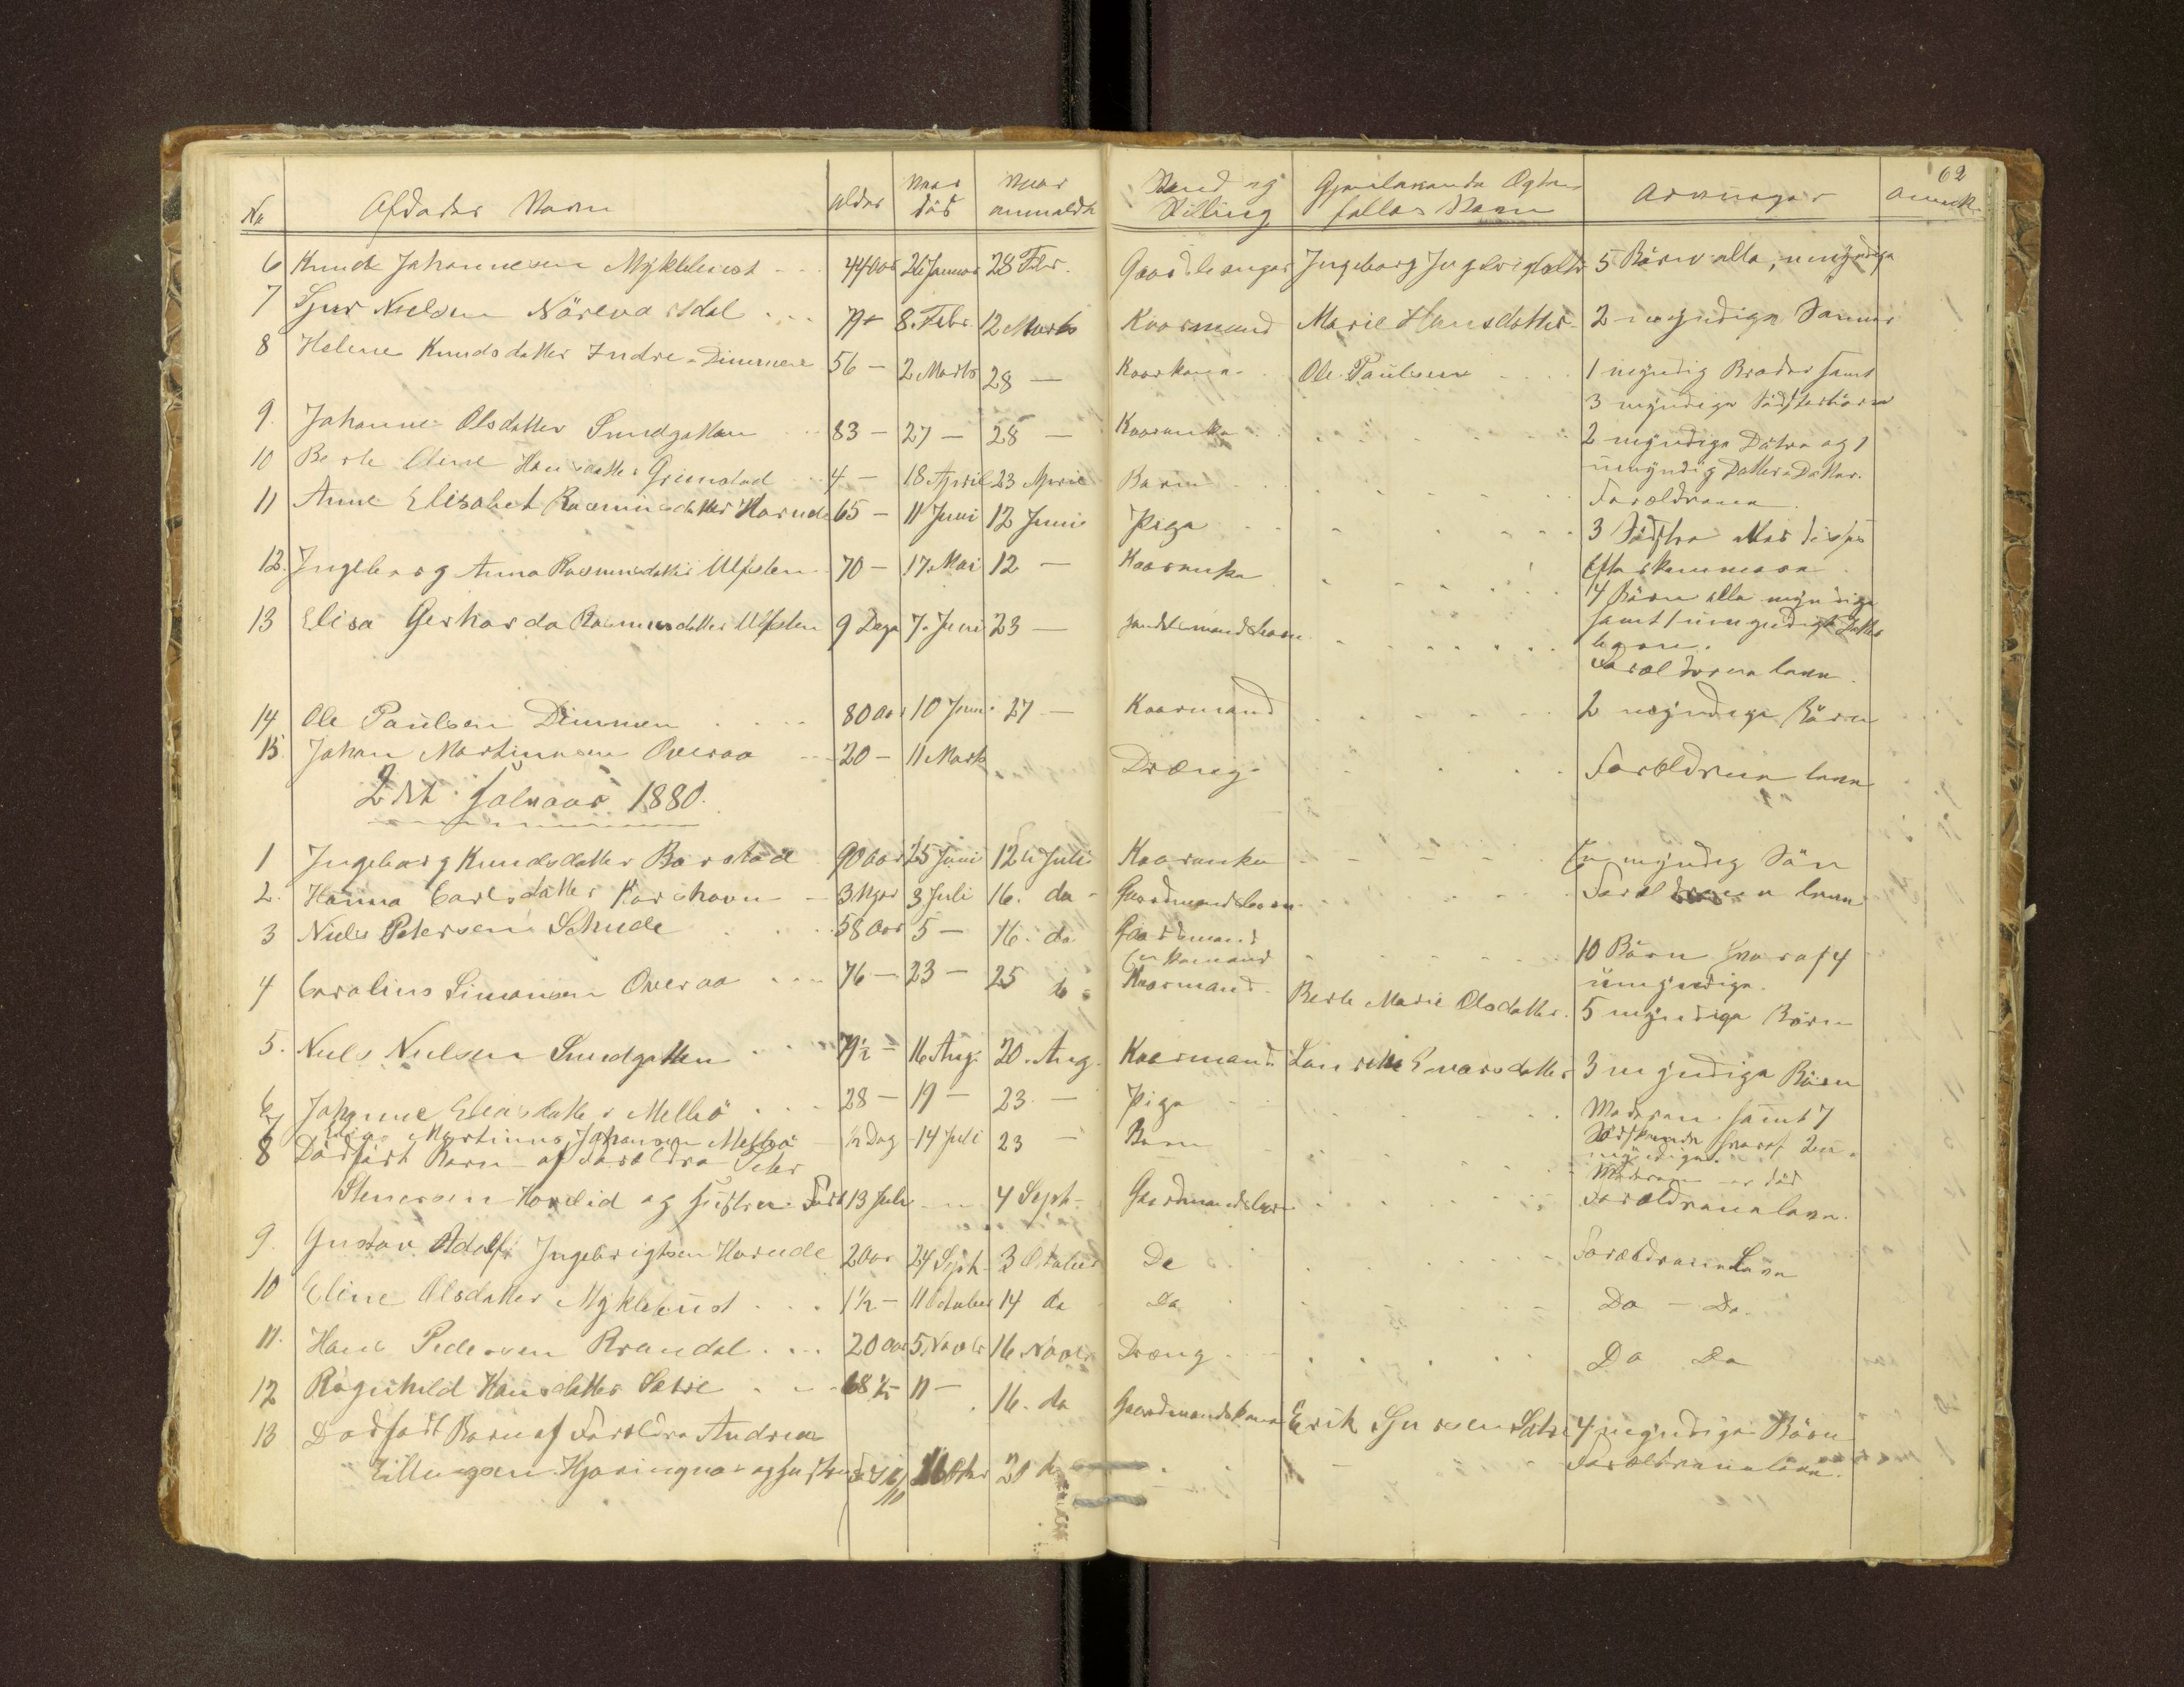 62
No Afdødes Navn alder naar død naar anmeldt Stand og Stilling Gjenlevende Ægtefælles Navn Arvinger Anmk.
6 Knud Johannesen Myklebust 44 Aar 26 Januar 28 Febr. Gaardbruger Ingeborg Ingebrigtsdtr 5 Børn alle umyndige
7 Sjur Nielsen Nörevartdal 79 - 8. Febr. 12 Marts Kaarmand Marie Hansdatter 2 myndige Sønner
8 Helene Knudsdatter Indre-Dimmen 56 - 2 Marts 28 - Kaarkone Ole Paulsen 1 myndig Broder samt
3 myndige Södsterbörn
9. Johanne Olsdatter Sundgotten 83 - 27 - 28 - Kaarenke 2 myndige Døtre og 1
umyndig Datters Datter.
10 Berte Oline Hansdatter Grimstad 4 - 18 April 23 April Barn Forældrene.
11 Anne Elisabet Rasmusdatter Hareide 65 - 11 Juni 12 Juni Pige 3 Södstre
Efterkommere
12. Ingeborg Anna Rasmusdatter Ulfsten 70 - 17. Mai 12 - Kaarenke 4 Börn alle myndige
samt 1 umyndigt Datter
barn.
13 Elisa Gerharda Rasmusdatter Ulfsten 9 Dage 7. Juni 23 - Forældrene leve.
14 Ole Paulsen Dimmen 80 Aar 10 Juni 27 - Kaarmand 2 myndige Börn
15. Johan Martinusen Overaa 20 - 11 Marts Dræng Forældrene leve
2det Halvaar 1880.
1 Ingeborg Knudsdatter Barstad 90 Aar 25 Juni 12te Juli Kaarenke En myndig Sön
2. Hanna Carlsdatter 3 Mdr 3 Juli 16. do - Gaardmandsbarn Forældrene leve
3 Niels Petersen Schude 58 Aar 5 - 16. do Gaardmand
Enkemand 10 Börn hvoraf 4
umyndige.
4 Carolius Simonsen Overaa 76 - 23 - 25 do Kaarmand Berte Marie Olsdatter. 5 myndige Börn
5. Niels Nielsen Sundgotten 79½ - 16 Aug. 20. Aug. Kaarmand Ivarsdatter 3 myndige Börn
6 Johanne Eliasdatter Melbö 28 - 19 - 23. - Pige Moderen samt 7
Södskende hvoraf 2 u-
myndige.
7 Elias Martinus Johansen Melbö ½ Dag 14 Juli 23 - Barn Moderen er död
8 Dödfødt Barn af Forældre Peter
Stenersen Hovlid og Hustru Født 13 Juli 4 Septr Gaardmandsbarn Forældrene leve.
9. Gustav Adolf Ingebrigtsen Hareide 2 Aar 24 Septr 3 Oktober Do Forældrene Leve
10 Eline Olsdatter Myklebust 1½ - 11 October 14 do Do Do - Do.
11. Hans Pedersen Brandal 20 Aar 5. Novbr 16. Novbr Dræng Do Do
12 Ragnhild Hansdatter Sætre 68½ - 11 - 16. do Gaardmandskone Erik Sjursen Sætre 4 myndige Börn
13 Dødfødt Barn af Forældre Andreas
Hjøringnæs og Hustru 20 do Forældrene leve.